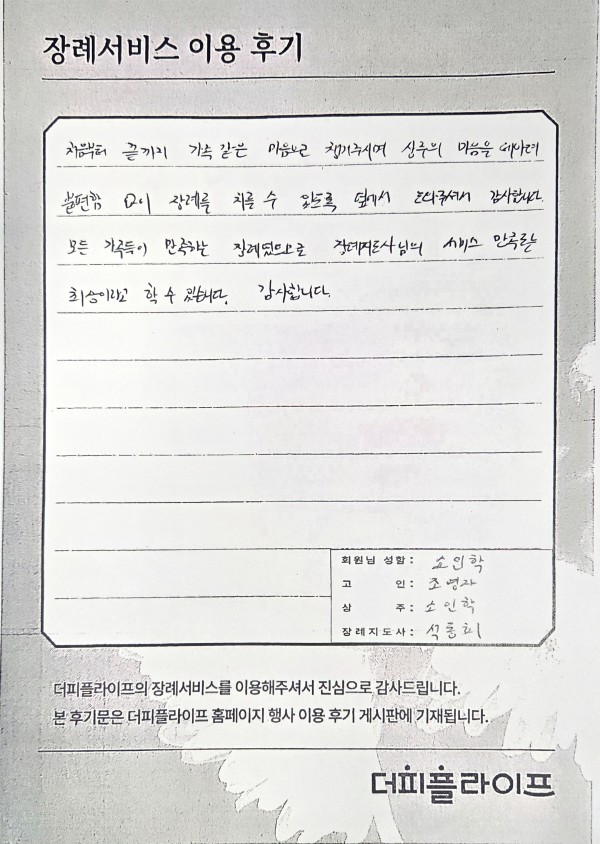 장례서비스 이용 후기
처음부터 끝까지 가족 같은 마음으로 챙겨주시며 상주의 마음을 헤아려
불편함 없이 장례를 치를 수 있도록 옆에서 도와주셔서 감사합니다.
모든 가족들이 만족하는 장례였으므로 장례지도사님의 서비스 만족도는
최상이라고 할 수 있습니다. 감사합니다.
회원님 성함 : 소인학
고 인 : 조영자
상 주 : 소인학
장례지도사 : 석통희
더피플라이프의 장례서비스를 이용해주셔서 진심으로 감사드립니다.
본 후기문은 더피플라이프 홈페이지 행사 이용 후기 게시판에 기재됩니다.
더피플라이프